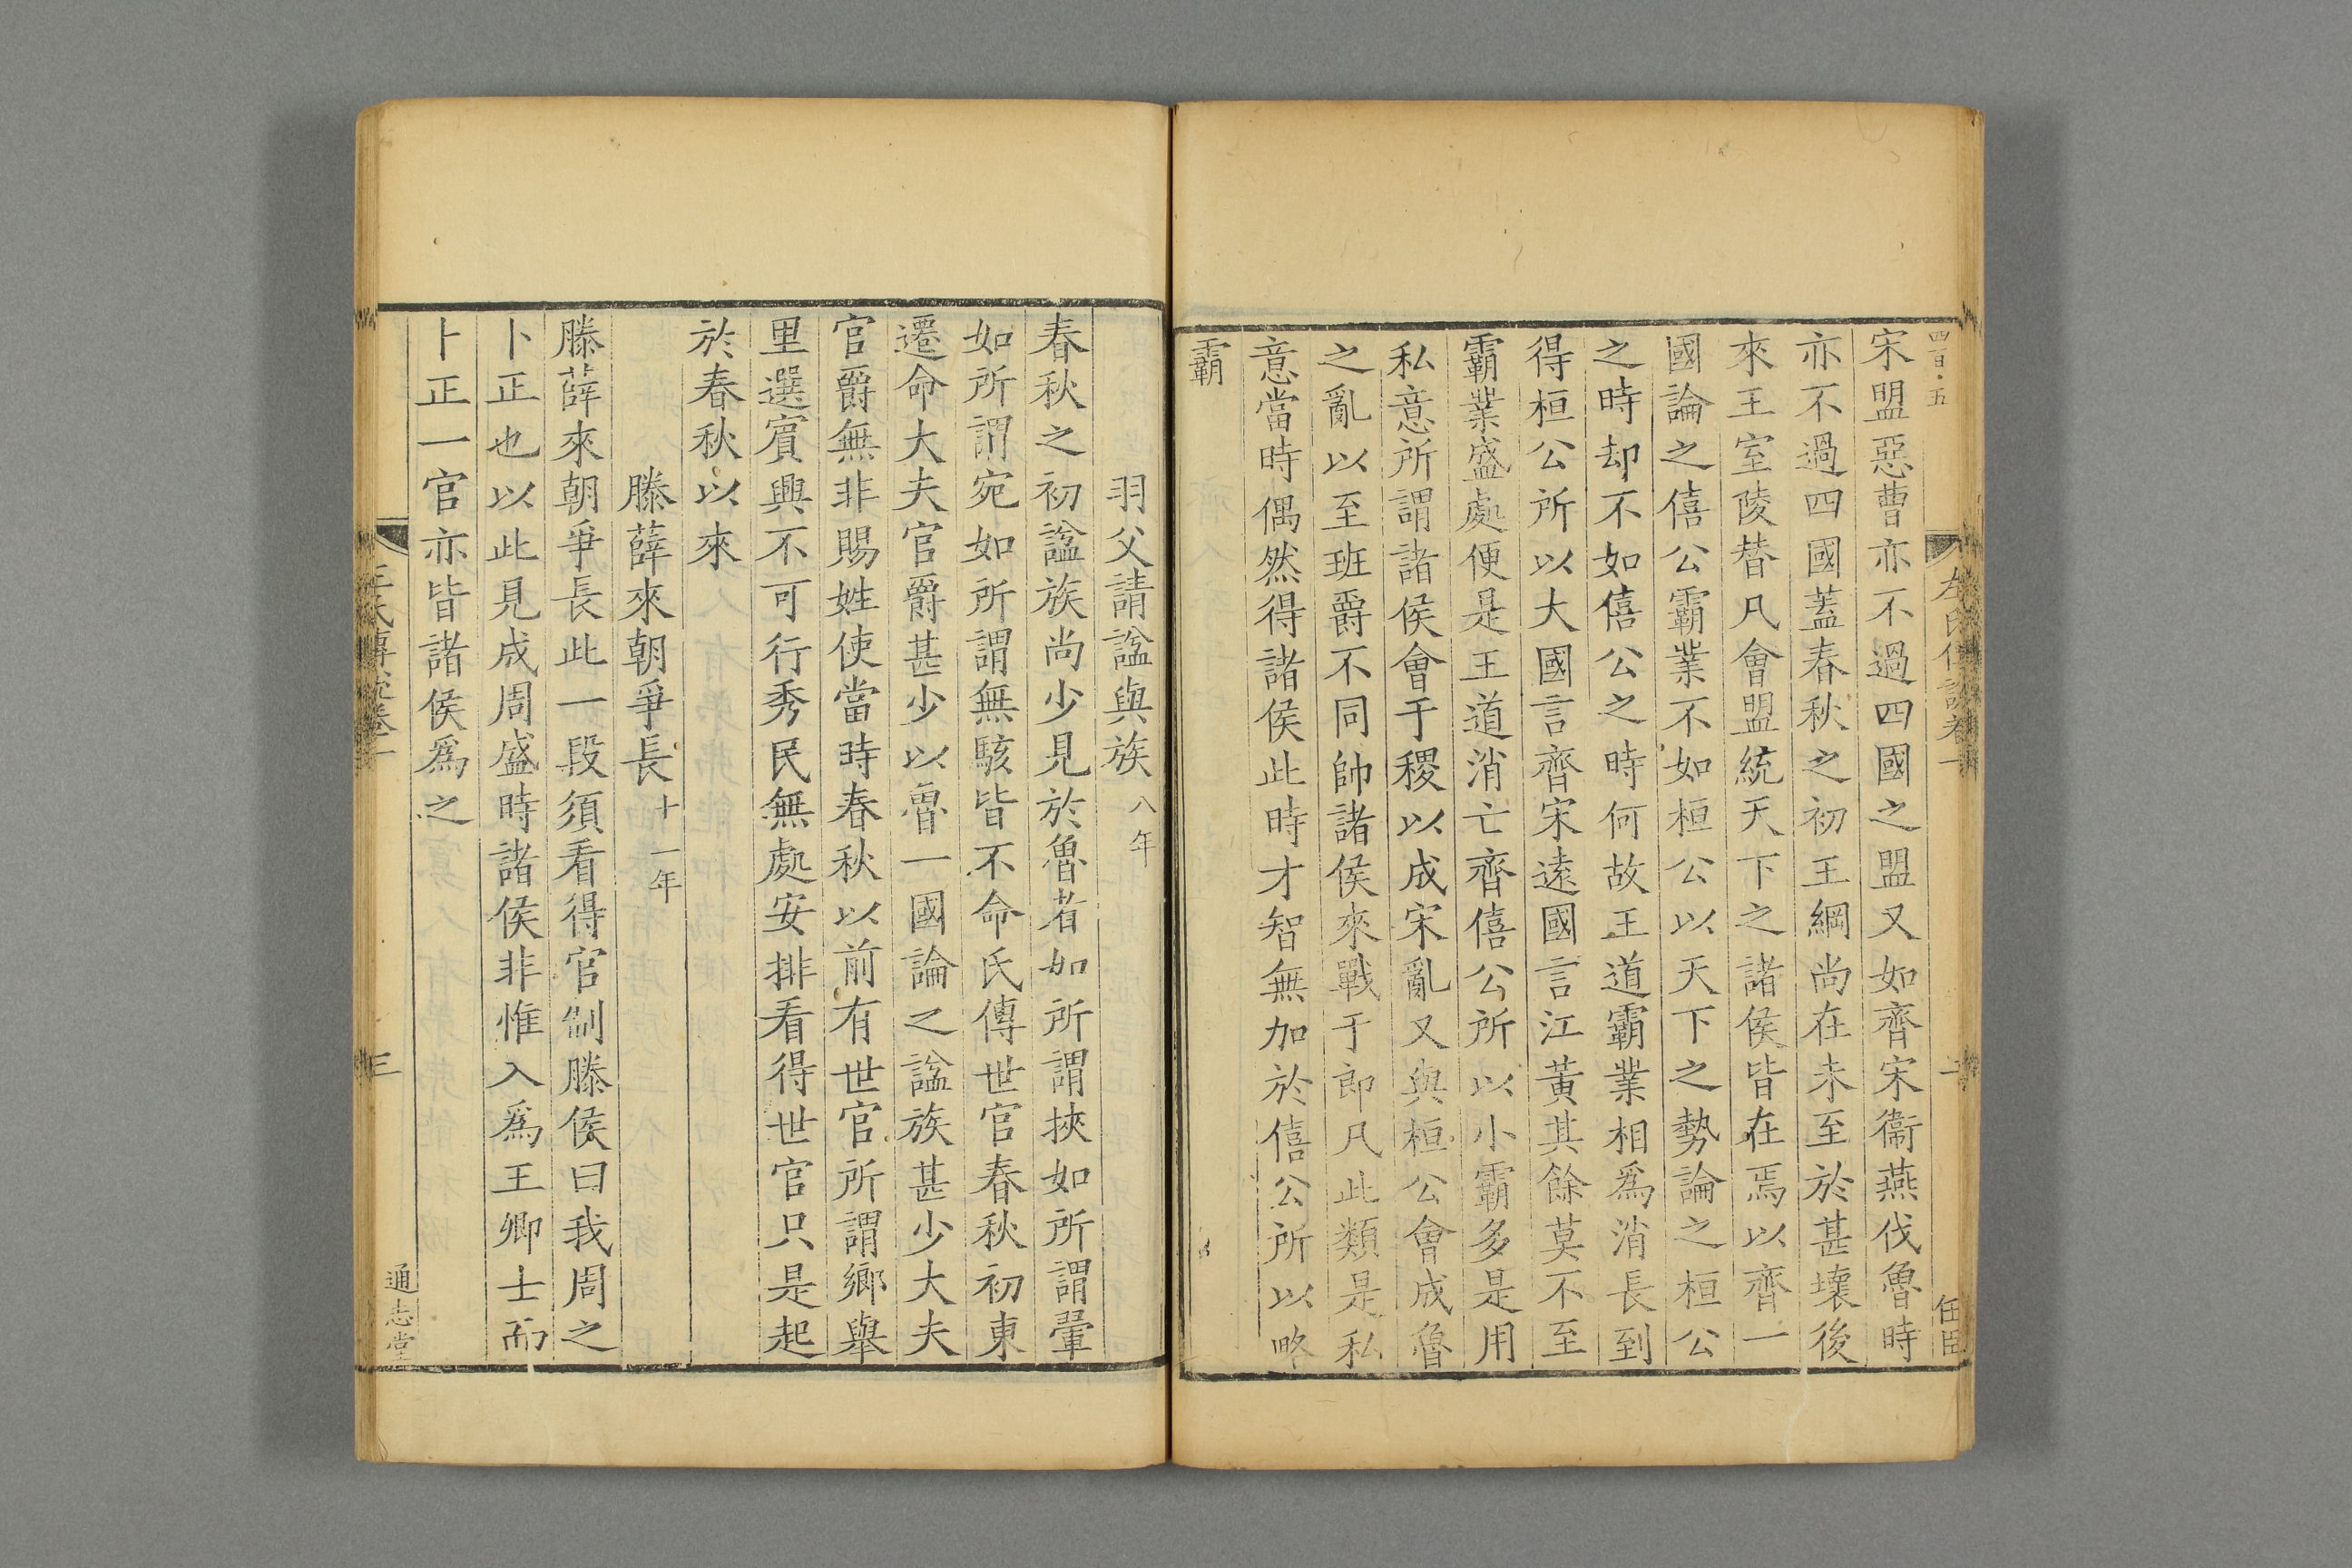 四百五
左氏傳說卷一
二
任臣
宋盟惡曹亦不過四國之盟又如齊宋衞燕伐魯時
亦不過四國蓋春秋之初王綱尚在未至於甚壞後
來王室陵替凡會盟統天下之諸侯皆在焉以齊一
國論之僖公霸業不如桓公以天下之勢論之桓公
之時却不如僖公之時何故王道霸業相爲消長到
得桓公所以大國言齊宋遠國言江黃其餘莫不至
霸業盛處便是王道消亡齊僖公所以小霸多是用
私意所謂諸侯會于稷以成宋亂又與桓公會成魯
之亂以至班爵不同帥諸侯來戰于郎凡此類是私
意當時偶然得諸侯此時才智無加於僖公所以略
霸
羽父請諡與族八年
春秋之初諡族尚少見於魯者如所謂挾如所謂翬
如所謂宛如所謂無駭皆不命氏傳世官春秋初東
遷命大夫官爵甚少以魯一國論之諡族甚少大夫
官爵無非賜姓使當時春秋以前有世官所謂鄉舉
里選賓興不可行秀民無處安排看得世官只是起
於春秋以來
滕薛來朝爭長十一年
滕薛來朝爭長此一段須看得官制滕侯曰我周之
卜正也以此見成周盛時諸侯非惟入爲王卿士而
卜正一官亦皆諸侯爲之
左氏傳說卷一
三
通志堂